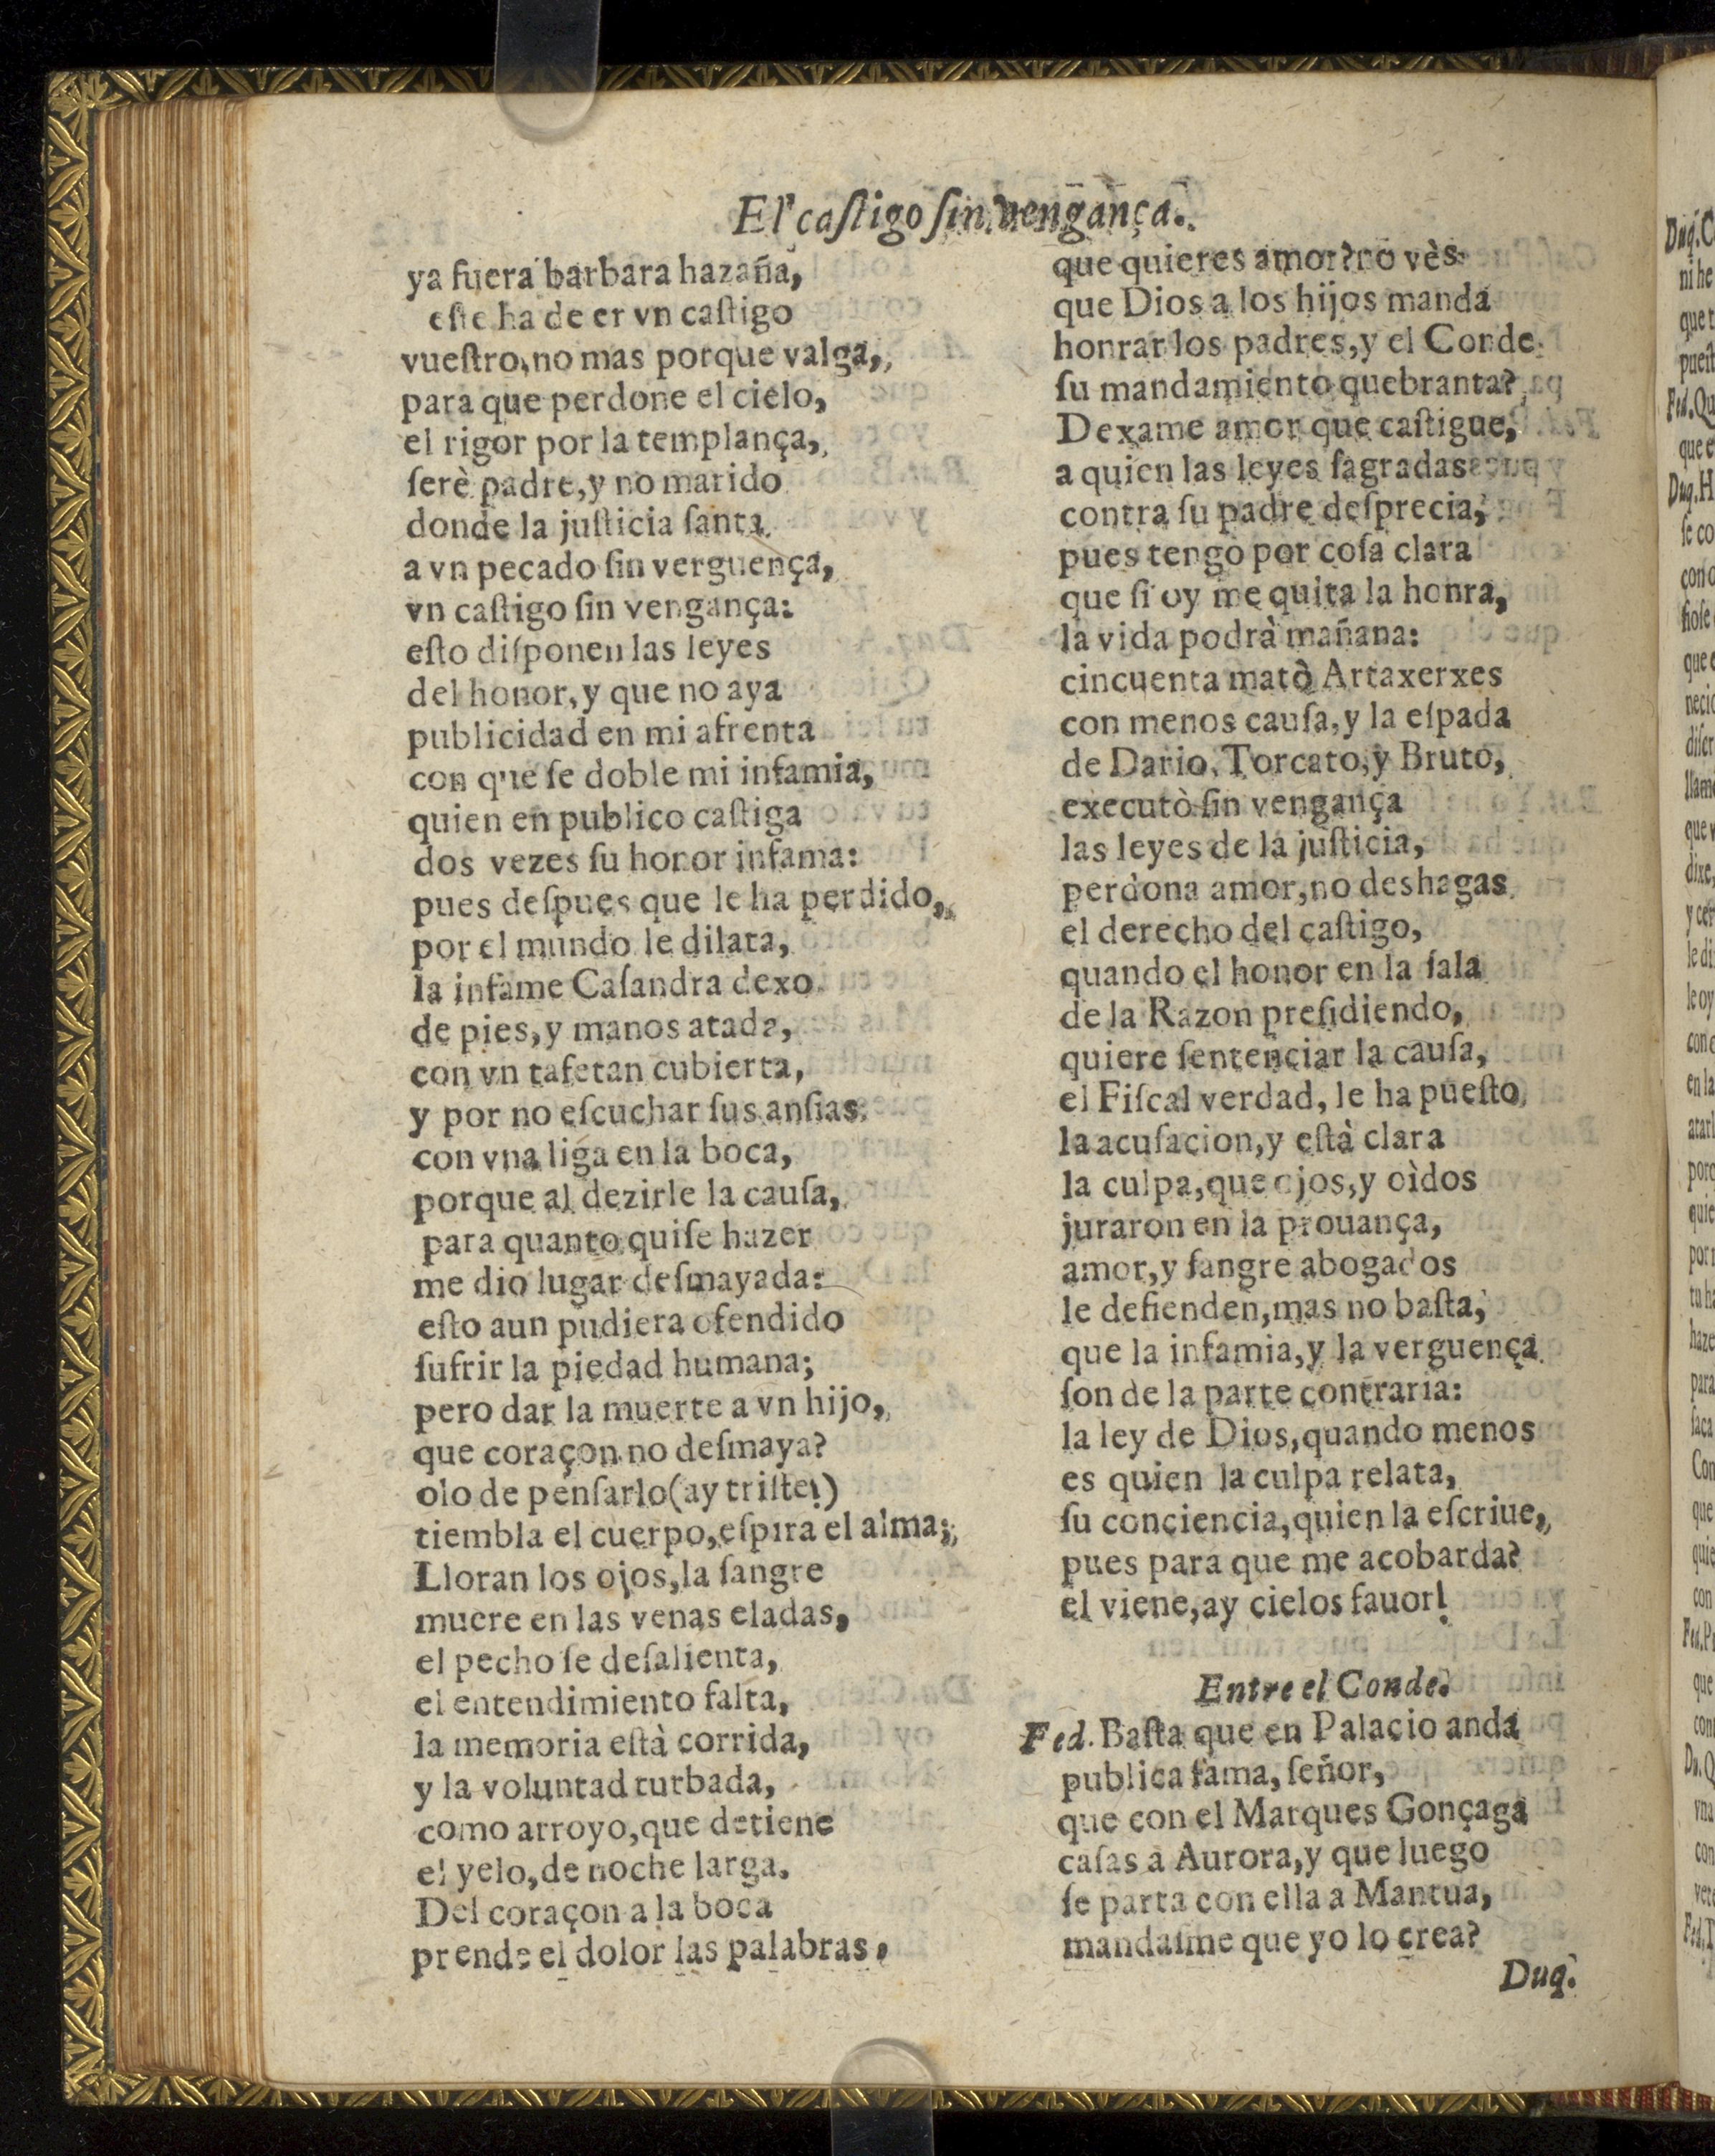 El castigo sin vengança.
ya fuera barbara hazaña,
este ha de er vn castigo
vuestro, no mas porque valga,
para que perdone el cielo,
el rigor por la templança,
serè padre, y no marido
donde la justicia santa
a vn pecado sin verguença,
vn castigo sin vengança:
esto disponen las leyes
del honor, y que no aya
publicidad en mi afrenta
con que se doble mi infamia,
quien en publico castiga
dos vezes su honor infama:
pues despues que le ha perdido,
por el mundo le dilata,
la infame Casandra dexo
de pies, y manos atada,
con vn tafetan cubierta,
y por no escuchar sus ansias
con vna liga en la boca,
porque al dezirle la causa,
para quanto quise hazer
me dio lugar desmayada:
esto aun pudiera ofendido
sufrir la piedad humana;
pero dar la muerte a vn hijo,
que coraçon no desmaya?
olo de pensarlo (ay triste!)
tiembla el cuerpo, espira el alma;
Lloran los ojos, la sangre
muere en las venas eladas,
el pecho se desalienta,
el entendimiento falta,
la memoria està corrida,
y la voluntad turbada,
como arroyo, que detiene
el yelo, de noche larga.
Del coraçon a la boca
prende el dolor las palabras,
que quieres amor? no vès
que Dios a los hijos manda
honrar los padres, y el Conde
su mandamiento quebranta?
Dexame amor que castigue,
a quien las leyes sagradas
contra su padre desprecia,
pues tengo por cosa clara
que si oy me quita la honra,
la vida podrà mañana:
cincuenta matò Artaxerxes
con menos causa, y la espada
de Dario, Torcato, y Bruto,
executò sin vengança
las leyes de la justicia,
perdona amor, no deshagas
el derecho del castigo,
quando el honor en la sala
de la Razon presidiendo,
quiere sentenciar la causa,
el Fiscal verdad, le ha puesto
la acusacion, y està clara
la culpa, que ojos, y oìdos
juraron en la prouança,
amor, y sangre abogados
le defienden, mas no basta,
que la infamia, y la verguença
son de la parte contraria:
la ley de Dios, quando menos
es quien la culpa relata,
su conciencia, quien la escriue,
pues para que me acobarda?
el viene, ay cielos fauor!
Entre el Conde.
Fed. Basta que en Palacio anda
publica fama, señor,
que con el Marques Gonçaga
casas a Aurora, y que luego
se parta con ella a Mantua,
mandasme que yo lo crea?
Duq.